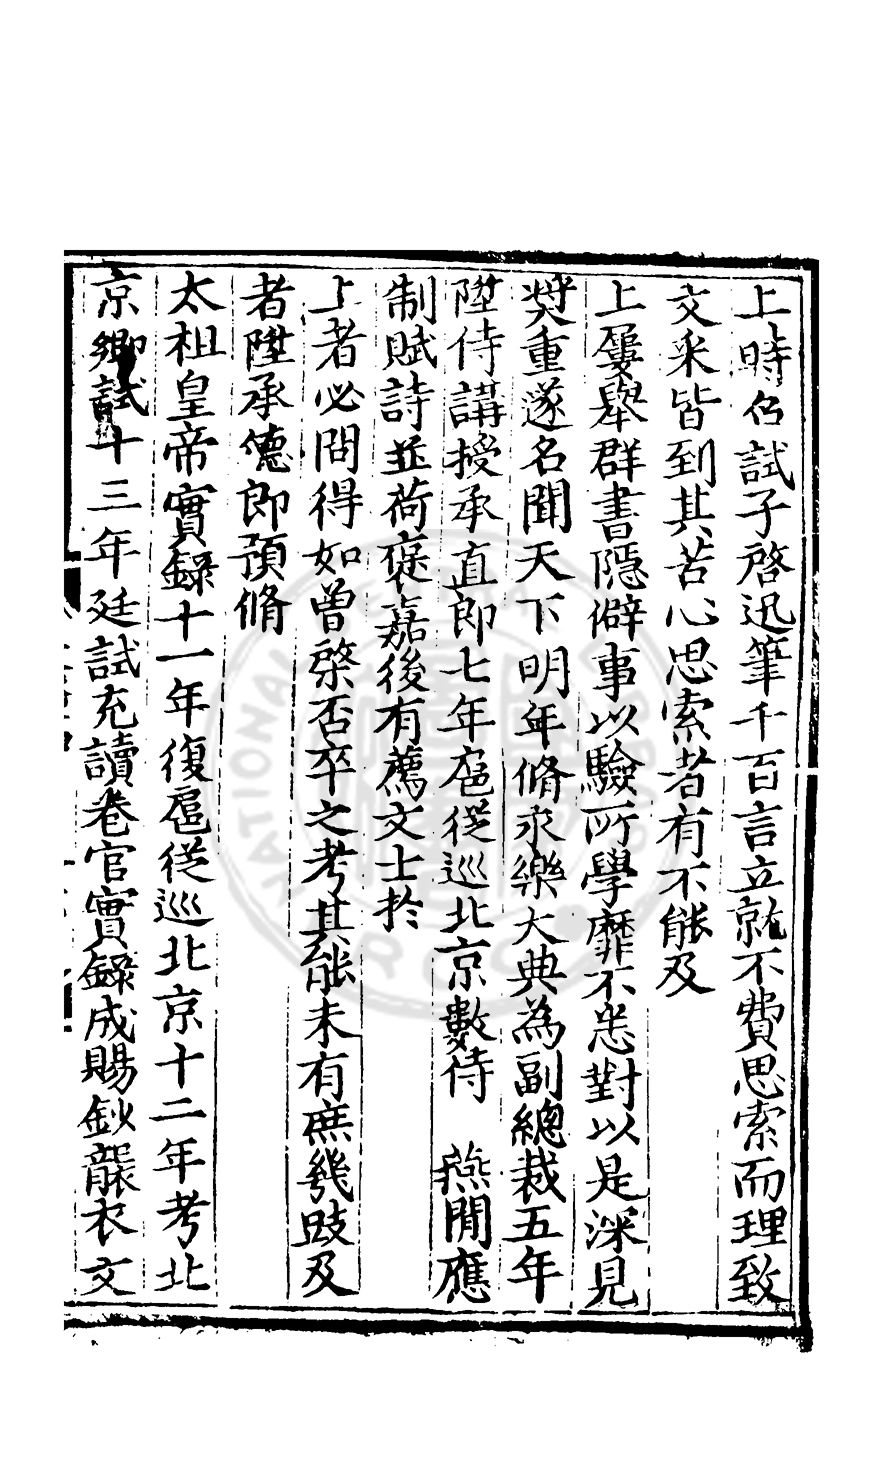 上時召試子啓迅筆千百言立就不費思索而理致
文采皆到其苦心思索者有不能及
上屢舉群書隱僻事以驗所學靡不悉對以是深見
奬重遂名聞天下明年脩永樂大典為副總裁五年
陞侍講授承直郎七年扈從巡北京數侍　燕閒應
制賦詩並荷褒嘉後有薦文士於
上者必問得如曾棨否卒之考其能未有庶幾跂及
者陞承德郎預脩
太祖皇帝實錄十一年復扈從巡北京十二年考北
京鄉試十三年廷試充讀卷官實錄成賜鈔襲衣文